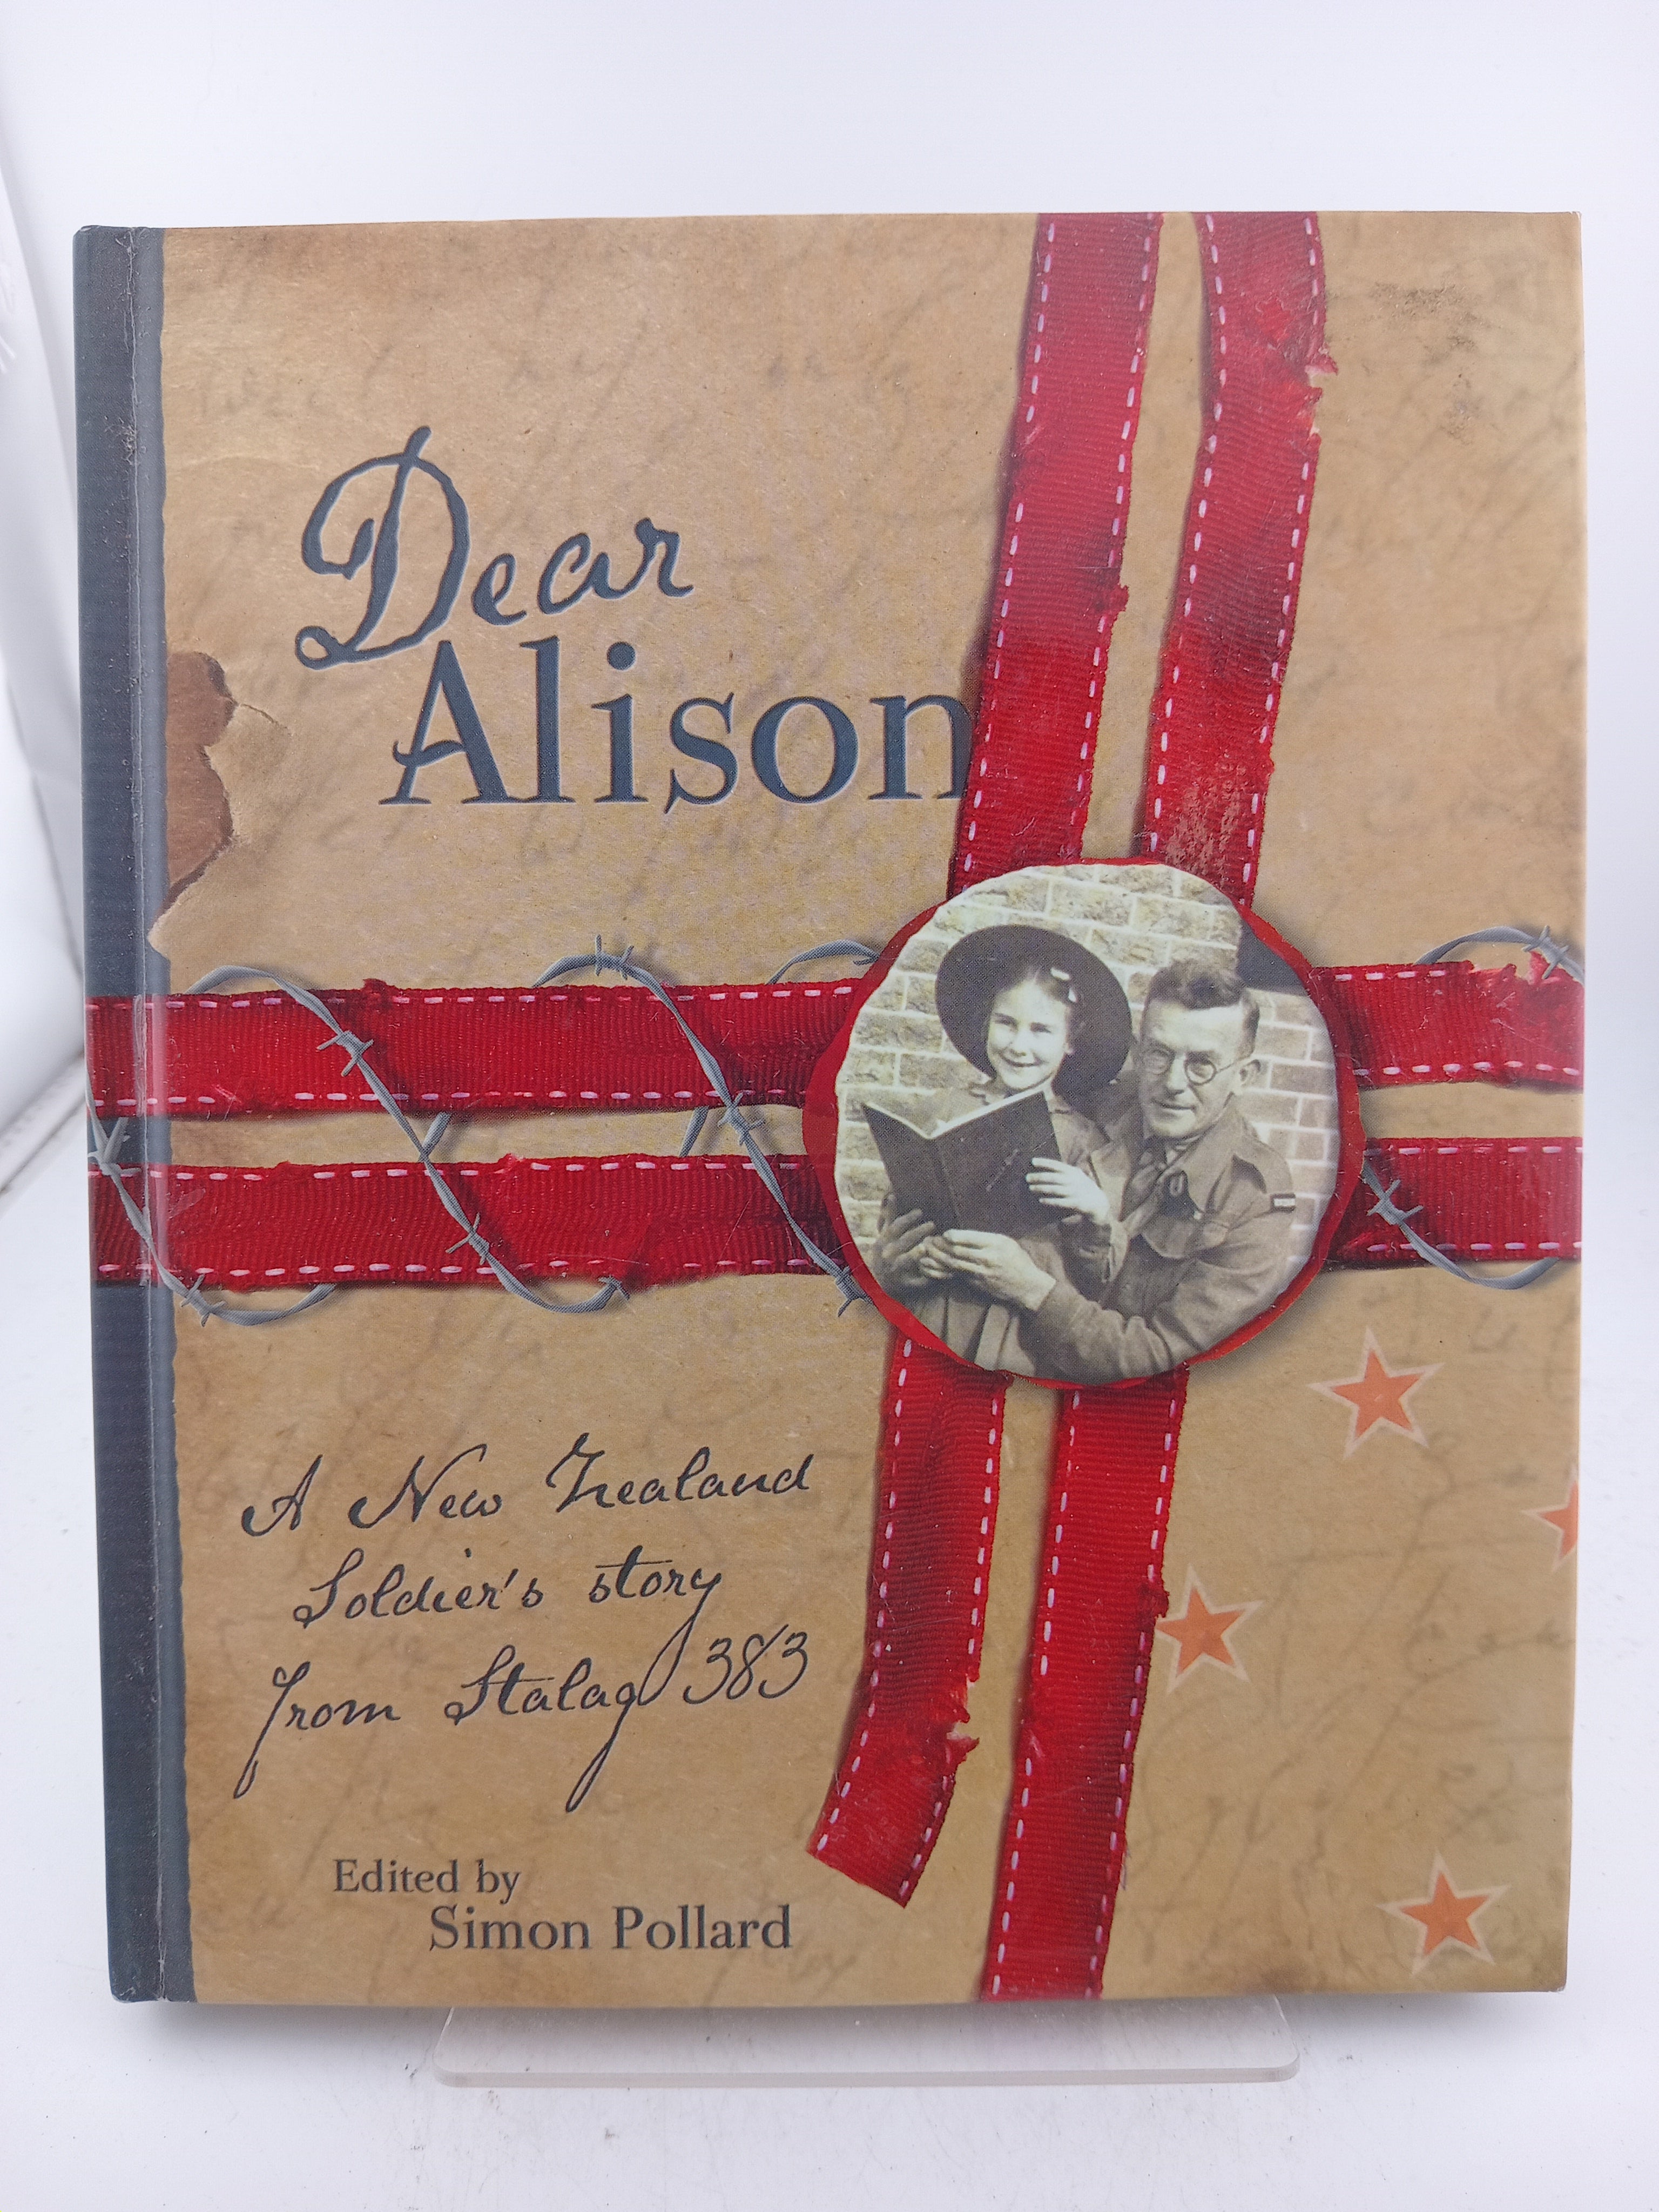 Dear
Alison
A New Zealand
Soldier's story
from Stalag 383
Edited by
Simon Pollard